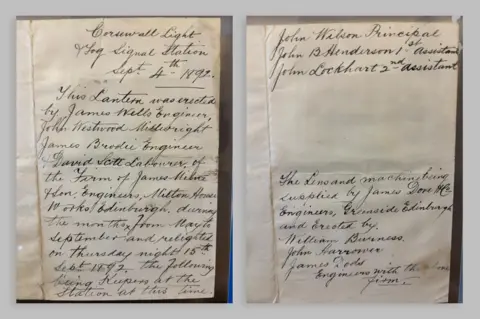 Corsewall Light
& Fog Signal Station
Sept. 4th 1892.
This Lantern was erected
by James Wells Engineer,
John Westwood Millwright
James Brodie Engineer
David Scott Labourer, of
the Firm of James Milne
& Son, Engineers, Milton House
Works, Edinburgh, during
the months from May to
September and relighted
on Thursday night 15th
Sept 1892. the following
being Keepers at the
Station at this time.
John Wilson Principal
John B Henderson 1st assistant
John Lockhart 2nd assistant
The Lens and machine being
supplied by James Dove & Co
Engineers, Greenside Edinburgh
and erected by.
William Burness.
John Harrower
James Dods
Engineers with the
firm.